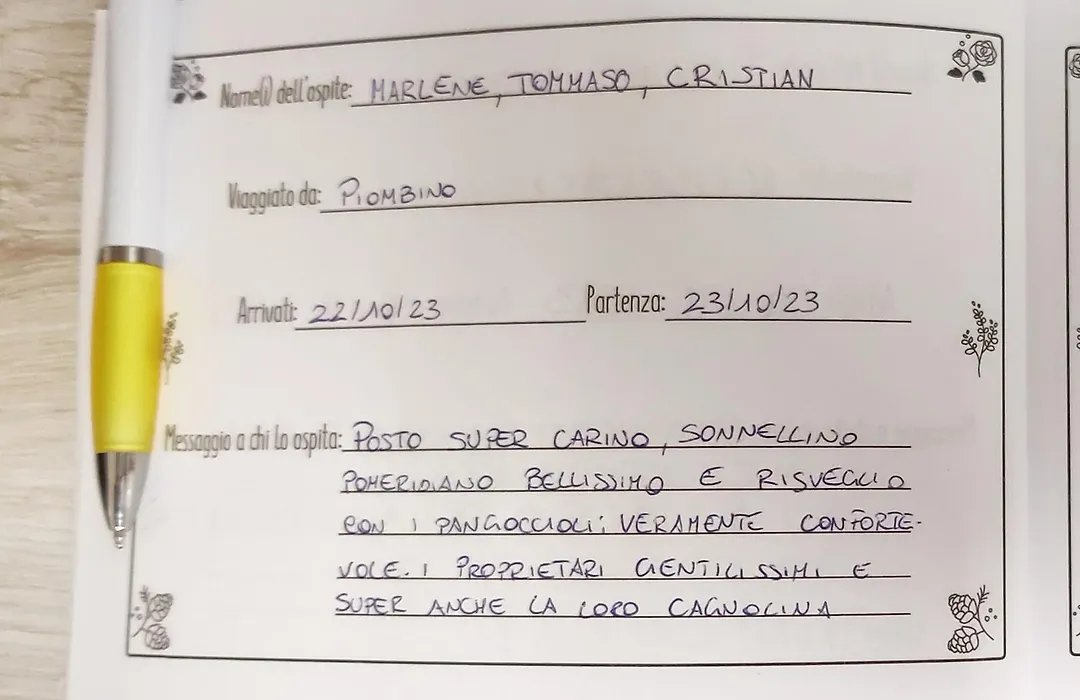 Nome(i) dell'ospite: MARLENE, TOMMASO, CRISTIAN
Viaggiato da: PIOMBINO
Arrivati: 22/10/23 Partenza: 23/10/23
Messaggio a chi lo ospita: POSTO SUPER CARINO, SONNELLINO
POMERIDIANO BELLISSIMO E RISVEGLIO
CON I PANGOCCIOLI; VERAMENTE CONFORTE-
VOLE. I PROPRIETARI GENTILISSIMI E
SUPER ANCHE LA LORO CAGNOLINA